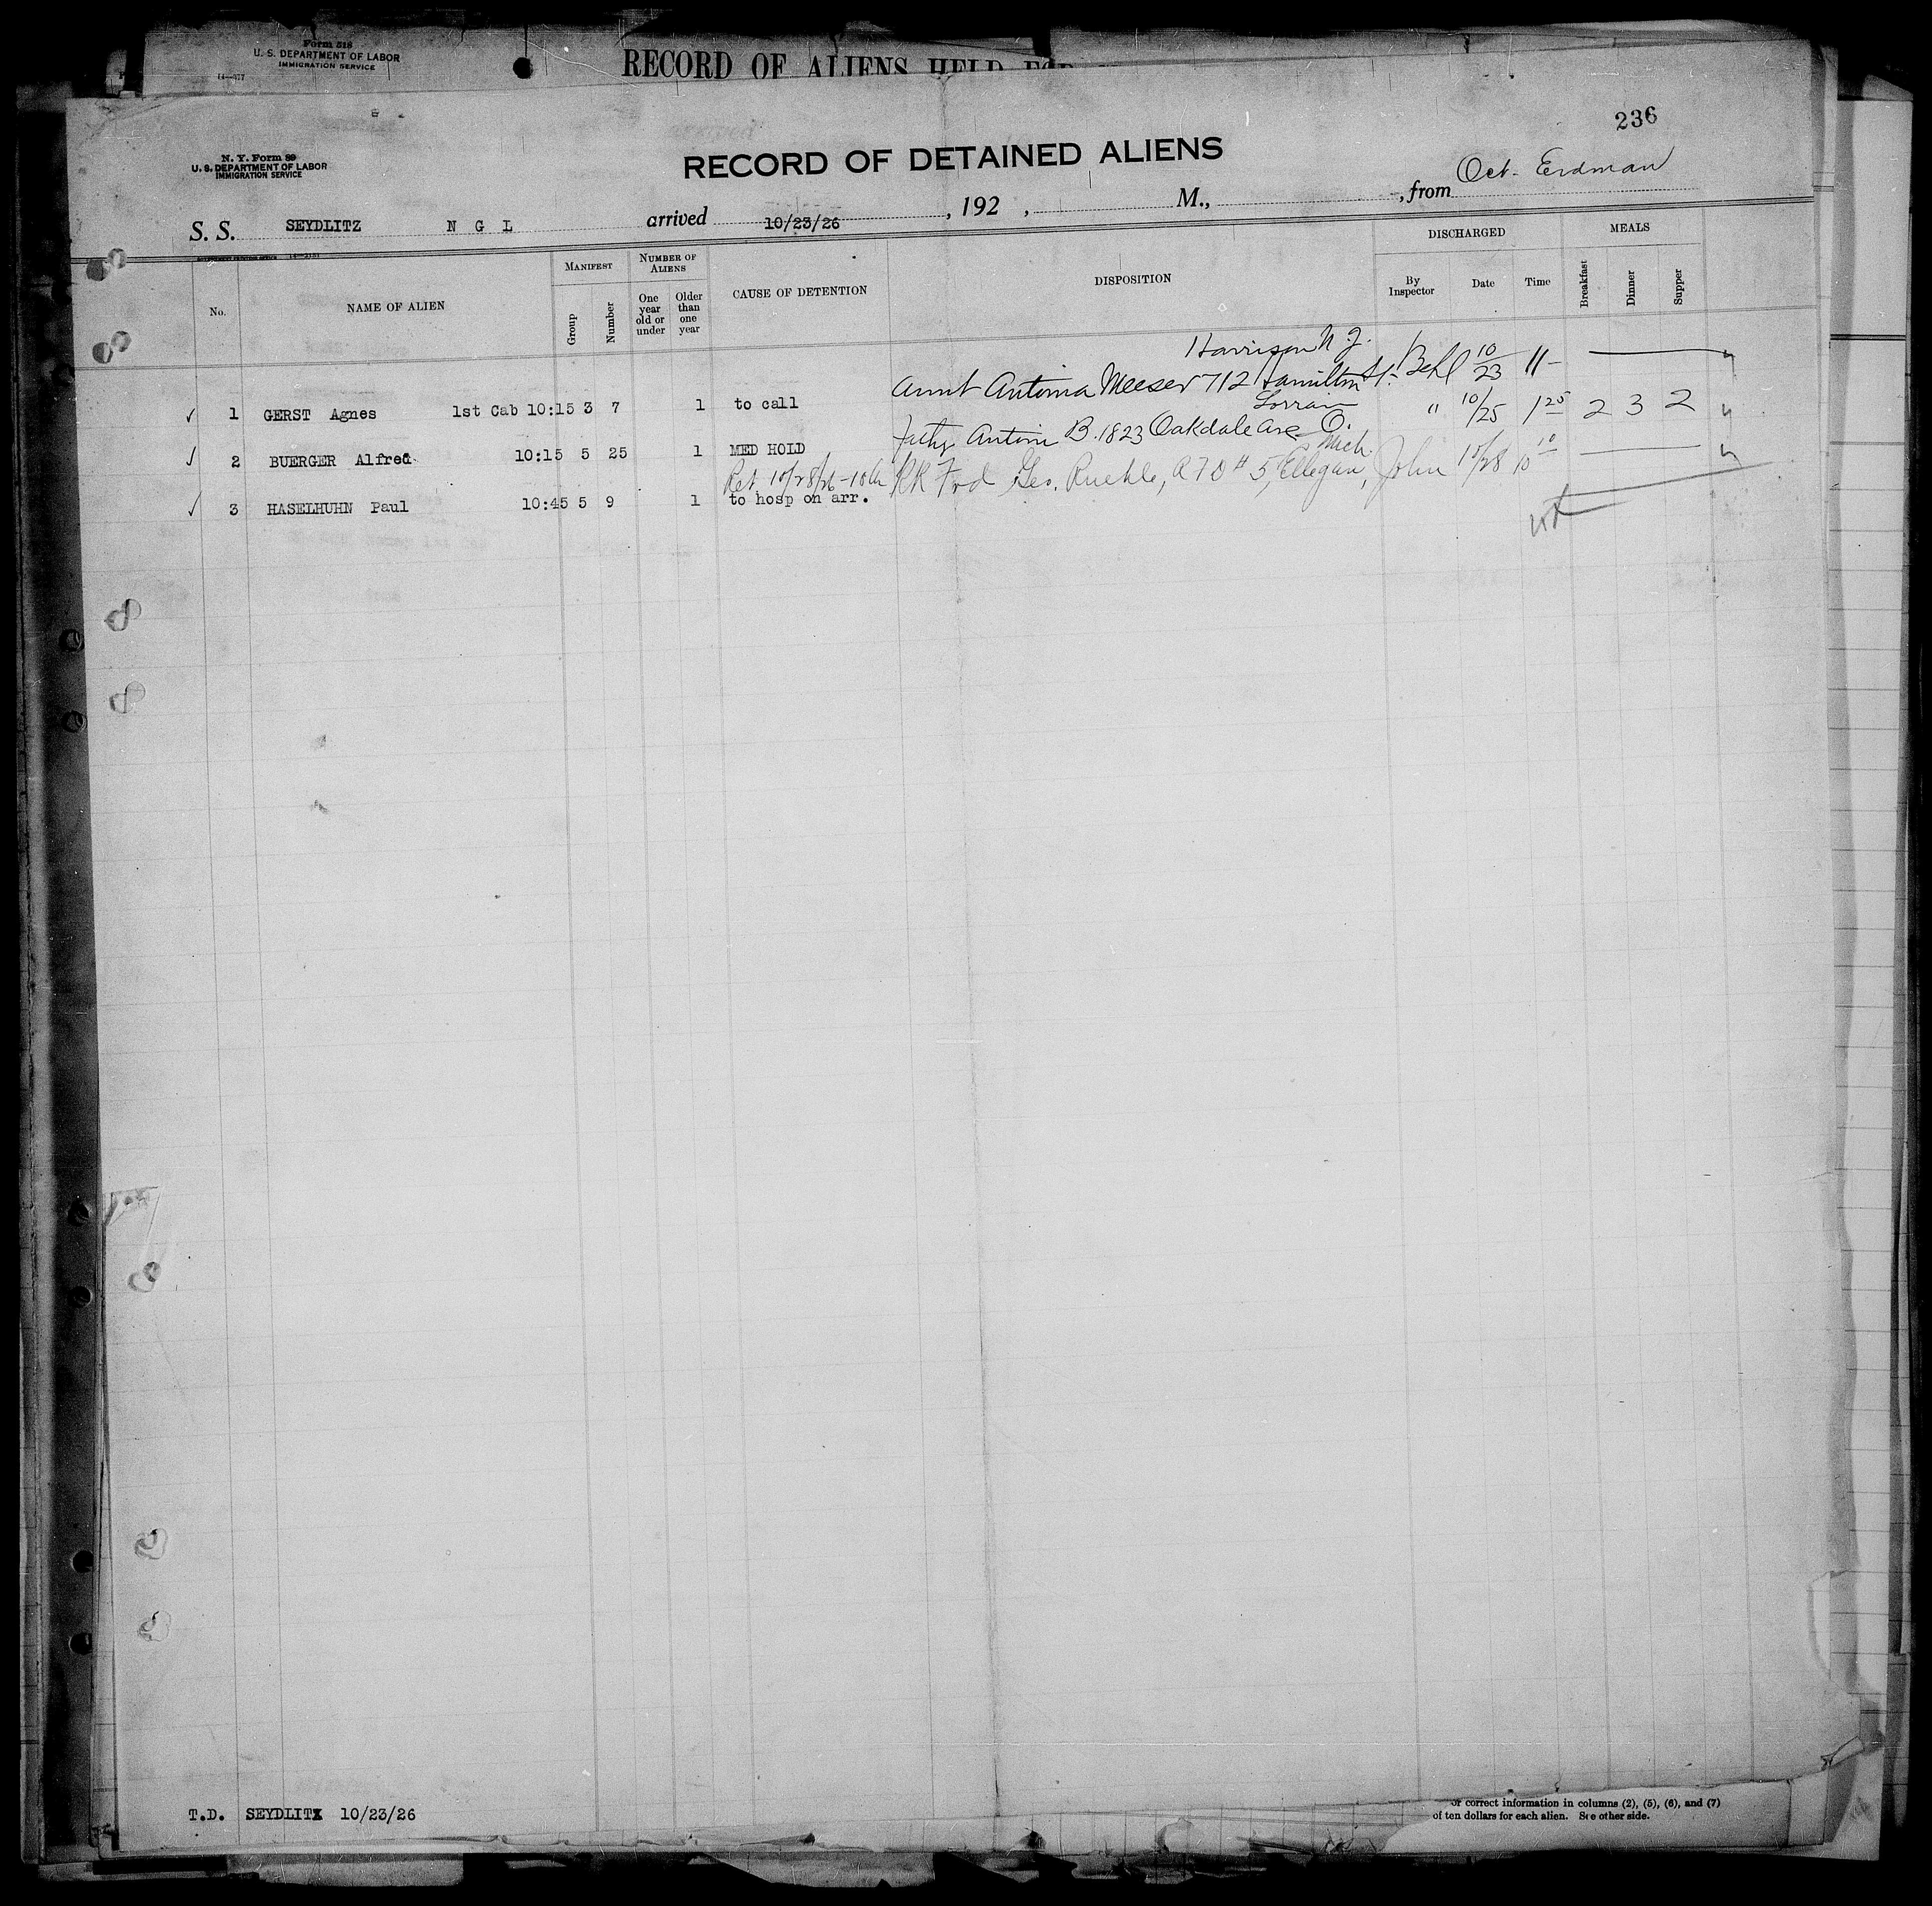 Form 518
U. S. DEPARTMENT OF LABOR
IMMIGRATION SERVICE
14—577
RECORD OF ALIENS HELD FOR
236
N. Y. Form 89
U. S. DEPARTMENT OF LABOR
IMMIGRATION SERVICE
RECORD OF DETAINED ALIENS
S. S. SEYDLITZ N G L arrived 10/23/26, 192 , M., , from Oct. Erdman
No. NAME OF ALIEN MANIFEST Group Number NUMBER OF ALIENS One year old or under Older than one year CAUSE OF DETENTION DISPOSITION DISCHARGED By Inspector Date Time MEALS Breakfast Dinner Supper
Harrison N. J.
1 GERST Agnes 1st Cab 10:15 3 7 1 to call Aunt Antonia Meeser 712 Hamilton St. Behl 10/23 11-
Lorrain
2 BUERGER Alfred 10:15 5 25 1 MED HOLD Anton B. 1823 Oakdale Ave O. " 10/25 1 25 2 3 2
Mich.
Ret 10/28/26 - 10 RR Geo. Ruehle, R F D # 5, Ellegan, John 10/28 10 10
3 HASELHUHN Paul 10:45 5 9 1 to hosp on arr.
T.D. SEYDLITZ 10/23/26
or correct information in columns (2), (5), (6), and (7)
of ten dollars for each alien. See other side.